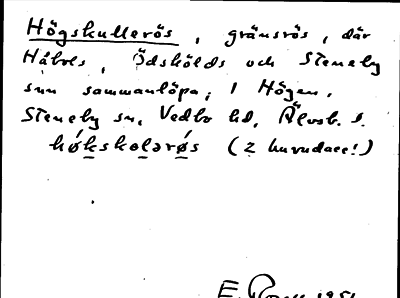 Högskullerös, gränsrös, där
Håbols, Ödskölds och Steneby
snn sammanlöpa; i Högen,
Steneby sn, Vedbo hd, Älvsb. l.
høkskolərøs (2 huvudacc!)
E. 1951